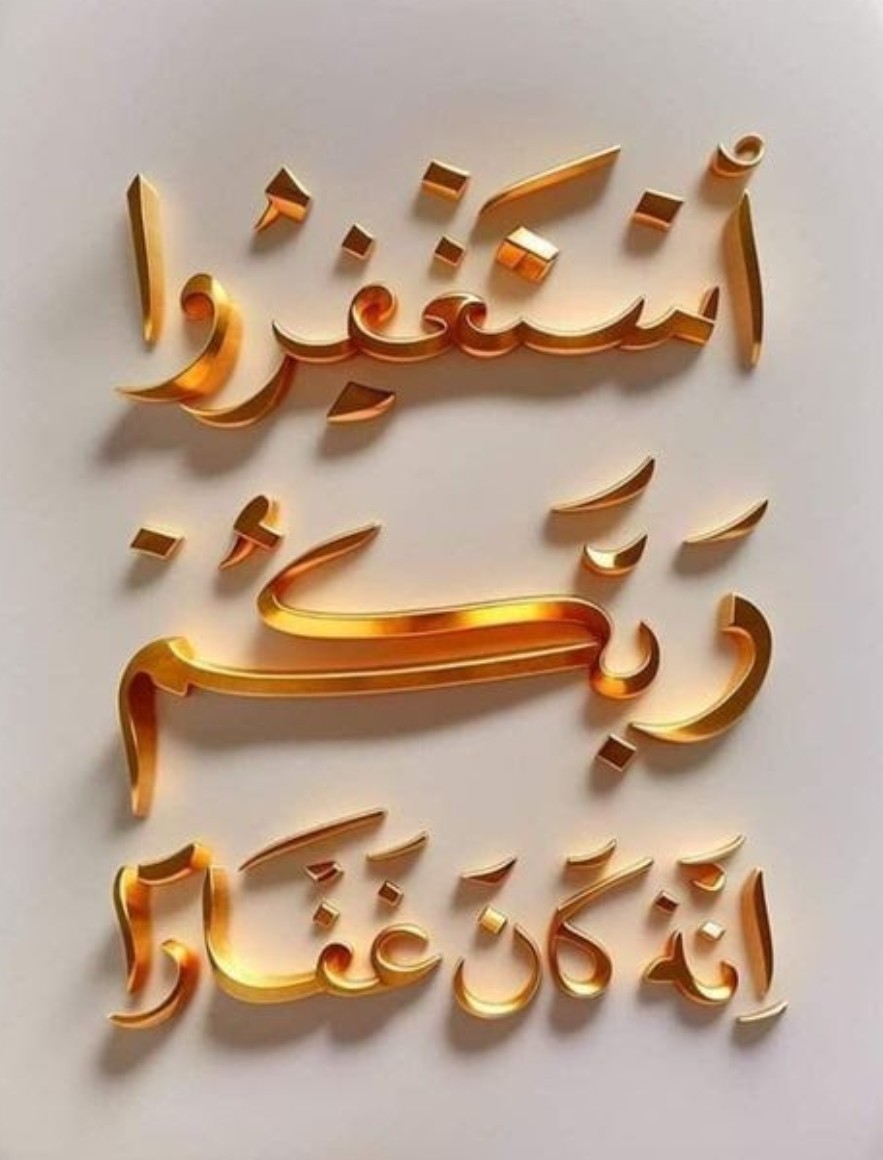 أستَغفِرُوا
رَبَّكُم
اِنَّهُ كَانَ غَفَّارَا